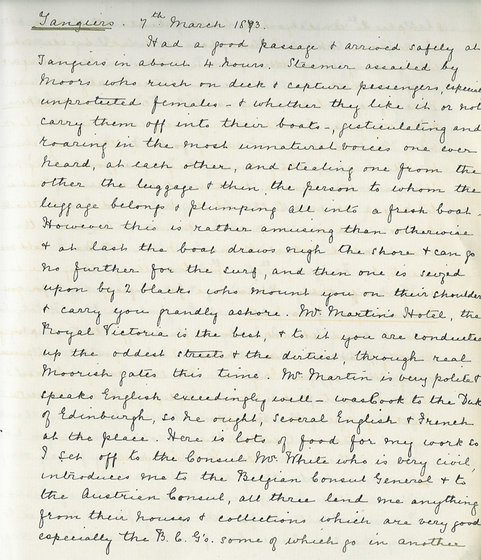 Tangiers. 7th March 1873.
Had a good passage & arrived safely at
Tangiers in about 4 hours. Steamer assailed by
Moors who rush on deck & capture passengers, especial
unprotected females - & whether they like it or not
carry them off into their boats -, gesticulating and
roaring in the most unnatural voices one ever
heard, at each other, and stealing one from the
other the luggage & then the person to whom the
luggage belongs & plumping all into a fresh boat -
However this is rather amusing than otherwise
& at last the boat draws nigh the shore & can go
no further for the surf, and then one is seized
upon by 2 blacks who mount you on their shoulder
& carry you grandly ashore. Mr Martin's Hotel, the
Royal Victoria is the best, & to it you are conducted
up the oddest streets & the dirtiest, through real
Moorish gates this time. Mr Martin is very polite &
speaks English exceedingly well - was Cook to the Duke
of Edinburgh, so he ought, several English & French
at the place. Here is lots of food for my work so
I set off to the Consul Mr White who is very civil,
introduces me to the Belgian Consul General & to
the Austrian Consul, all three lend me anything
from their houses & collections which are very good
especially the B. C. G's. some of which go in another